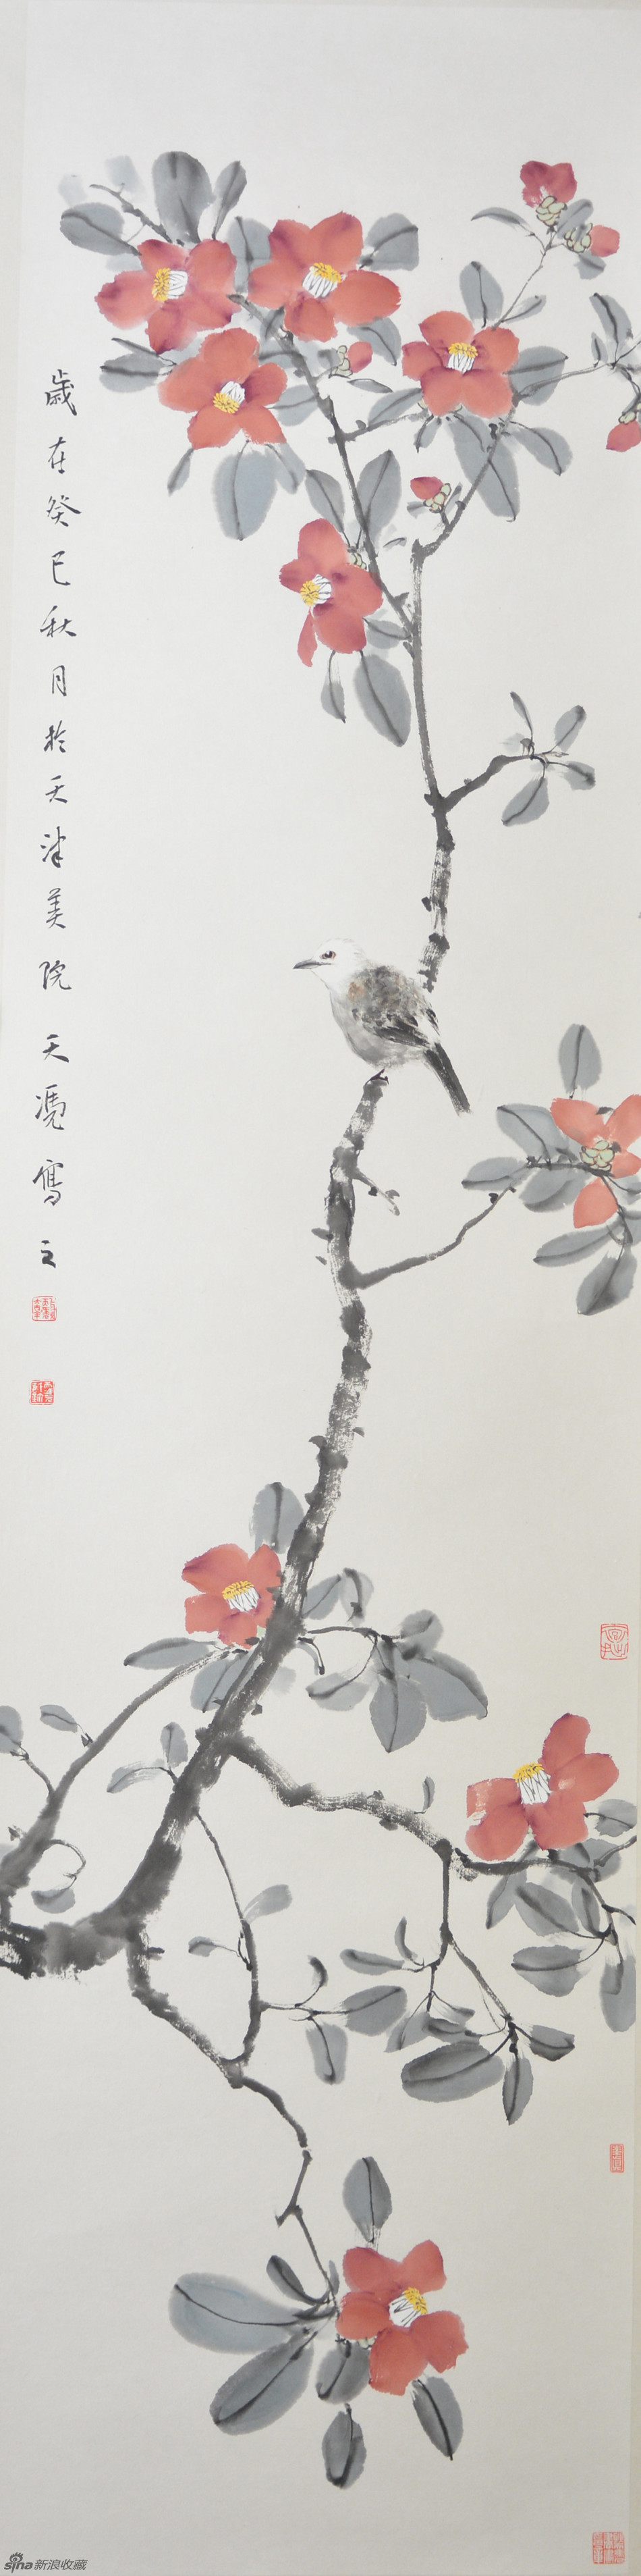 歲在癸巳秋月於天津美院 天馮寫之
sina 新浪收藏